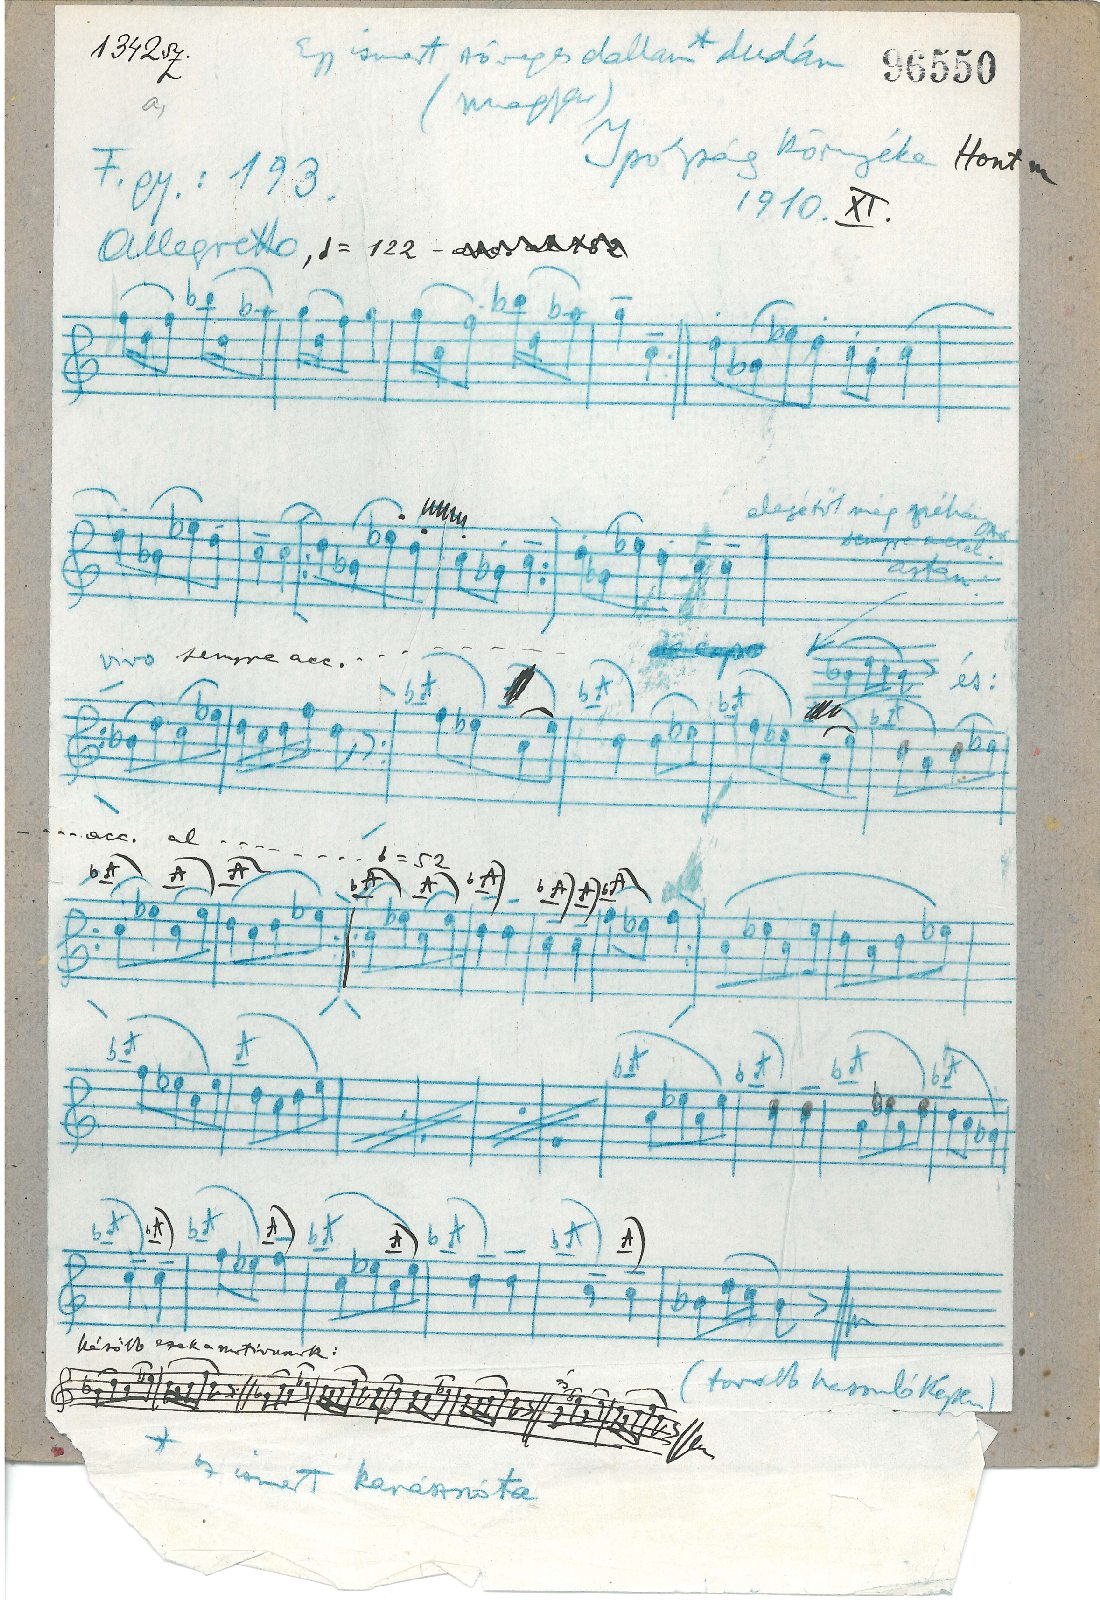 1342 sz.
a,
Egy ismert szöveges dallam* dudán 96550
(magyar)
Ipolyság környéke Hont m
F. gy.: 193. 1910. XI.
Allegretto, = 122 -
elejétől még néhány
sempre accel.
aztán
vivo sempre acc.
és:
acc. al = 52
később ezek a motívumok:
(tovább hasonlóképen)
* az ismert kanásznóta